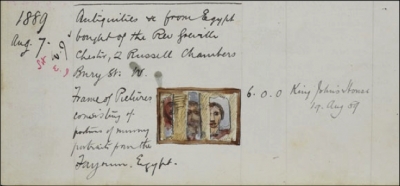 1889
Aug. 7.
Antiquities &c from Egypt
bought of the Rev Greville
Chester, 2 Russell Chambers
Bury St. W.
Frame of Pictures
consisting of
portions of mummy
portraits from the
Fayoum, Egypt.
6. 0. 0 King John's House
Aug 89